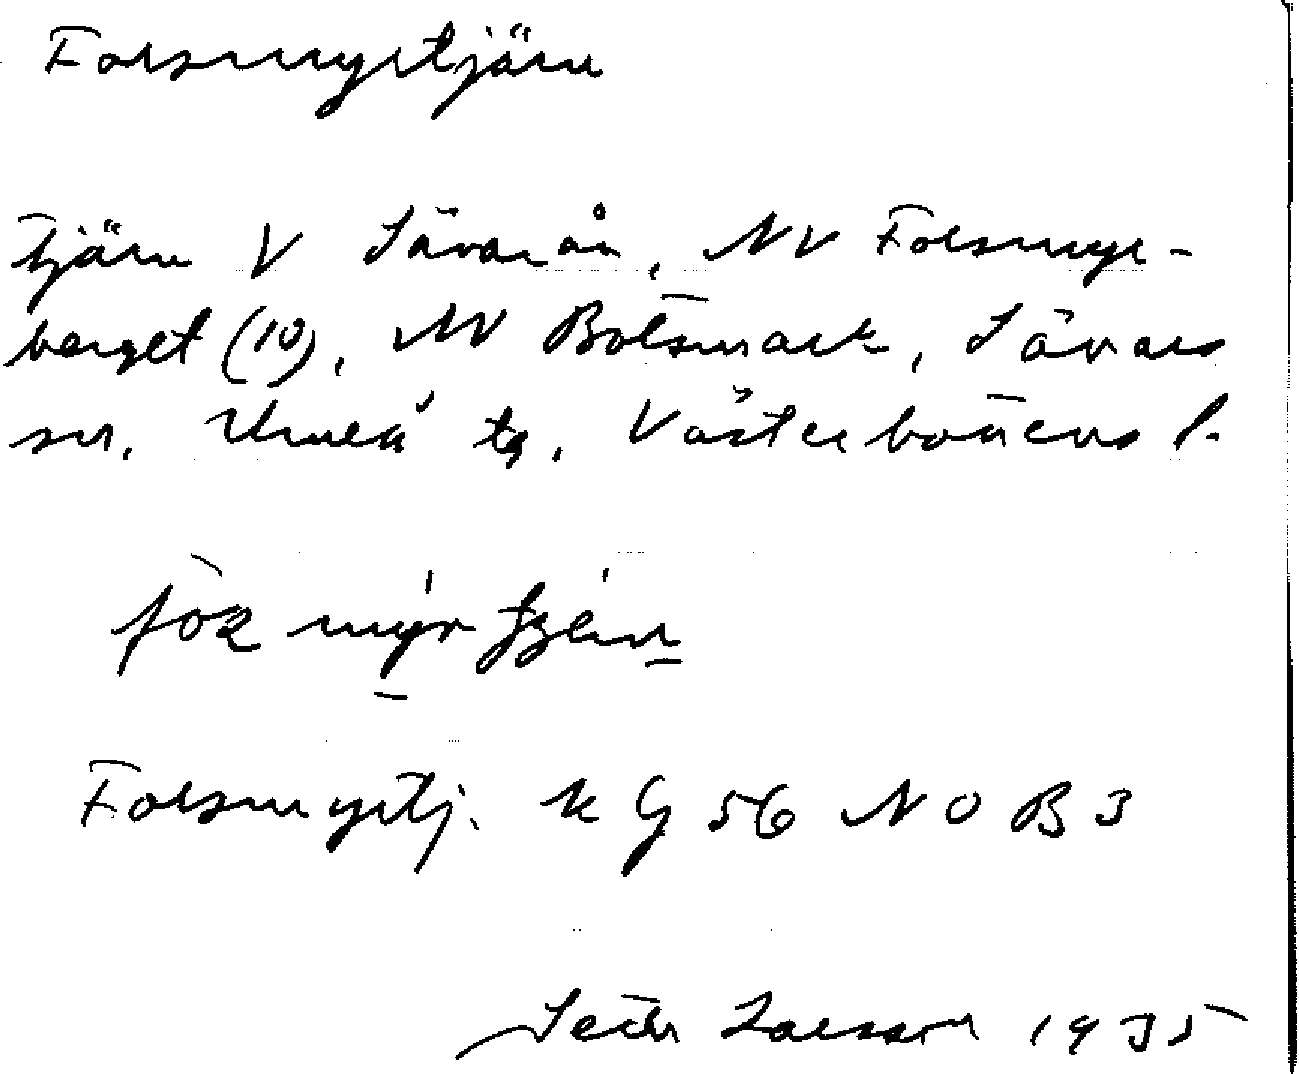 Forsmyrtjärn
tjärn V Sävarån, NV Forsmyr-
berget (10), NV Botsmark, Sävars
sn, Umeå tg, Västerbottens l.
Forsmyrtj. k G 56 NO B 3
Seth Larsson 1935